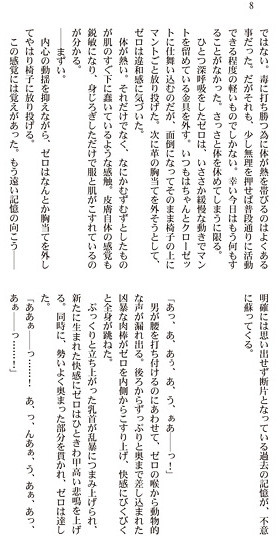 8
ではない。毒に打ち勝つ為に体が熱を帯びるのはよくある
事だった。だがそれも、少し無理を押せば普段通りに活動
できる程度の軽いものでしかない。幸い今日はもう何もす
ることがなかった。さっさと体を休めてしまうに限る。
ひとつ深呼吸をしたゼロは、いささか緩慢な動きでマン
トを留めている金具を外す。いつもはちゃんとクローゼッ
トに仕舞い込むのだが、面倒になってそのまま椅子の上に
マントごと放り投げた。次に革の胸当てを外そうとして、
ゼロは違和感に気づいた。
体が熱い。それだけでなく、なにかむずむずとしたもの
が肌のすぐ下に蠢いているような感触。皮膚自体の感覚も
鋭敏になり、身じろぎしただけで服と肌がこすれているの
が分かる。
――まずい。
内心の動揺を抑えながら、ゼロはなんとか胸当てを外し
てやはり椅子に放り投げる。
この感覚には覚えがあった。もう遠い記憶の向こう――
明確には思い出せず断片となっている過去の記憶が、不意
に蘇ってくる。
「あっ、あ、あぅ、あ、う、ぁあ――っ！」
男が腰を打ち付けるのにあわせて、ゼロの喉から動物的
な声が漏れ出る。後ろからずっぷりと奥まで差し込まれた
凶暴な肉棒がゼロを内側からこすり上げ、快感にびくびく
と全身が跳ねた。
ぷっくりと立ち上がった乳首が乱暴につまみ上げられ、
新たに生まれた快感にゼロはひときわ甲高い悲鳴を上げ
る。同時に、勢いよく奥まった部分を貫かれ、ゼロは達し
た。
「ああぁ――っ……！　あ、っ、んあぁ、う、あぁ、あっ、
あぁ――っ……！」